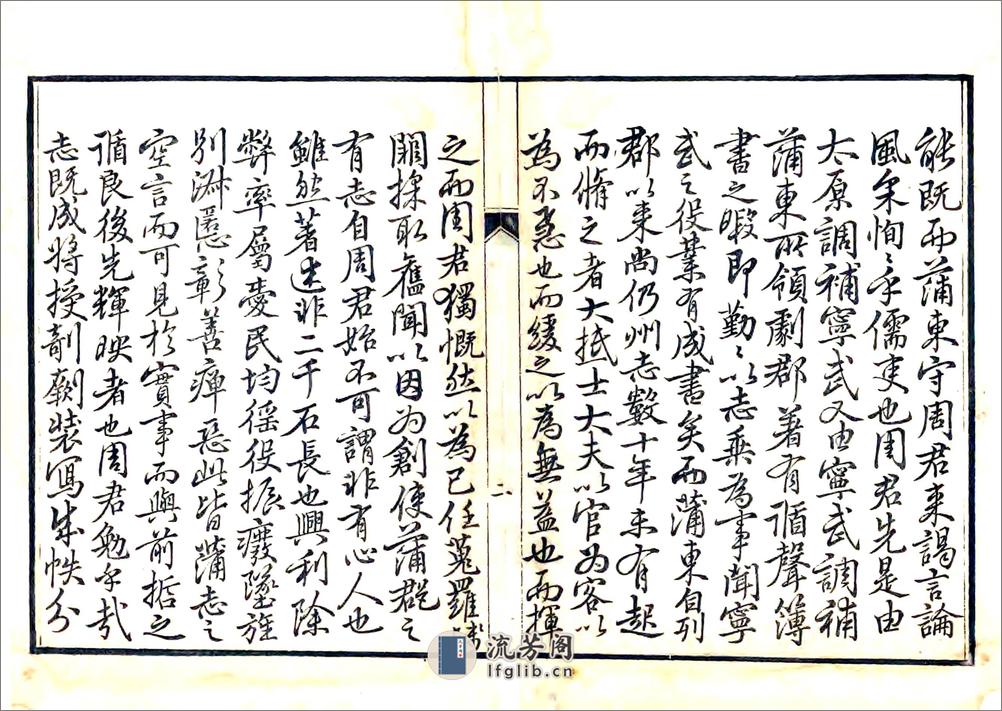 能既而蒲東守周君来謁言論
風采恂〻乎儒吏也周君先是由
太原調補寧武又由寧武調補
蒲東所領劇郡著有循聲簿
書之暇即勤〻以志乘為事聞寧
武之役業有成書矣而蒲東自列
郡以来尚仍州志數十年未有起
而脩之者大抵士大夫以官為客以
為不急也而緩之以為無益也而揮
二
之而周君獨慨然以為己任蒐羅
闕採取舊聞以因為創使蒲郡之
有志自周君始不可謂非有心人也
雖然著述非二千石長也興利除
弊率屬愛民均徭役振癈墜旌
別淑慝彰善癉惡此皆蒲志之
空言而可見於實事而與前哲之
循良後先輝映者也周君勉乎哉
志既成將授剞劂裝寫成帙分
流芳阁
lfglib.cn